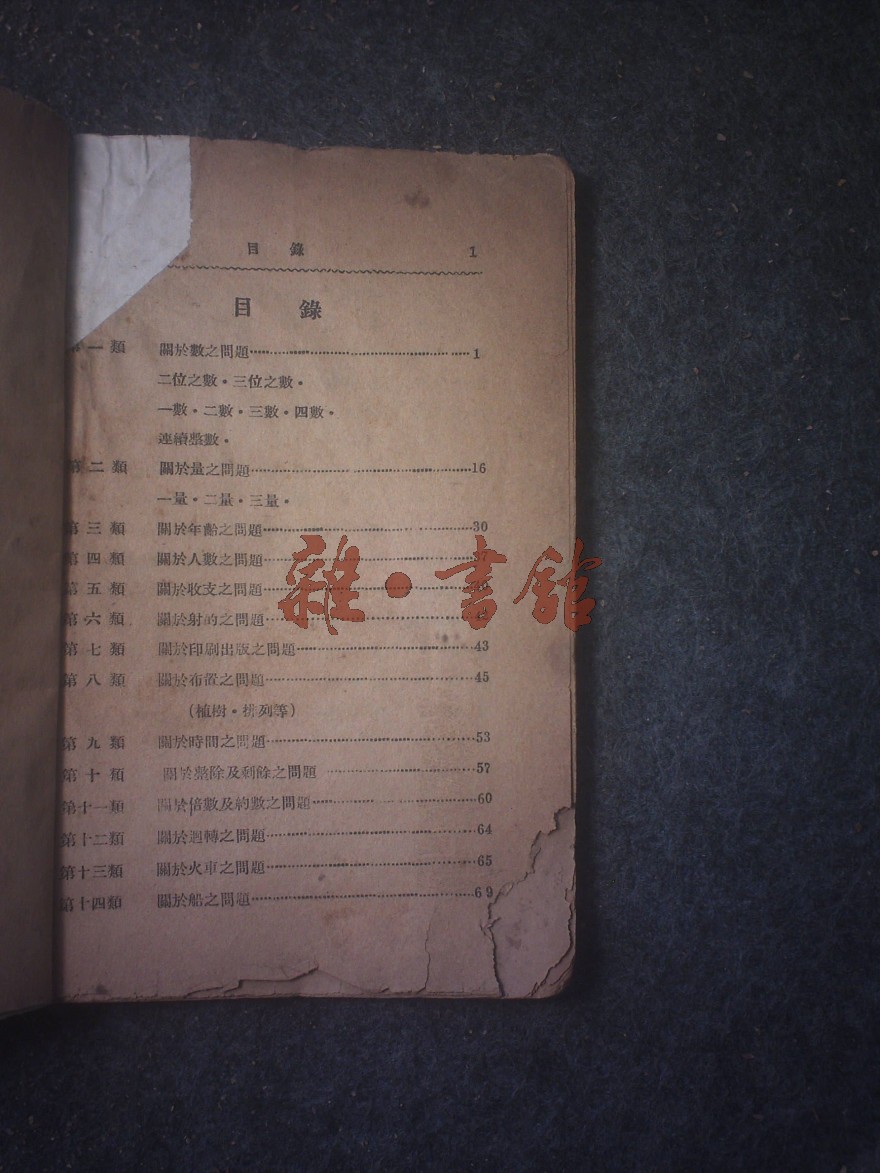 目錄 1
目錄
第一類 關於數之問題 1
二位之數・三位之數・
一數・二數・三數・四數・
連續整數・
第二類 關於量之問題 16
一量・二量・三量・
第三類 關於年齡之問題 30
第四類 關於人數之問題 37
第五類 關於收支之問題
第六類 關於射的之問題
第七類 關於印刷出版之問題 43
第八類 關於布置之問題 45
(植樹・排列等)
第九類 關於時間之問題 53
第十類 關於整除及剩餘之問題 57
第十一類 關於倍數及約數之問題 60
第十二類 關於迴轉之問題 64
第十三類 關於火車之問題 65
第十四類 關於船之問題 69
雜・書館